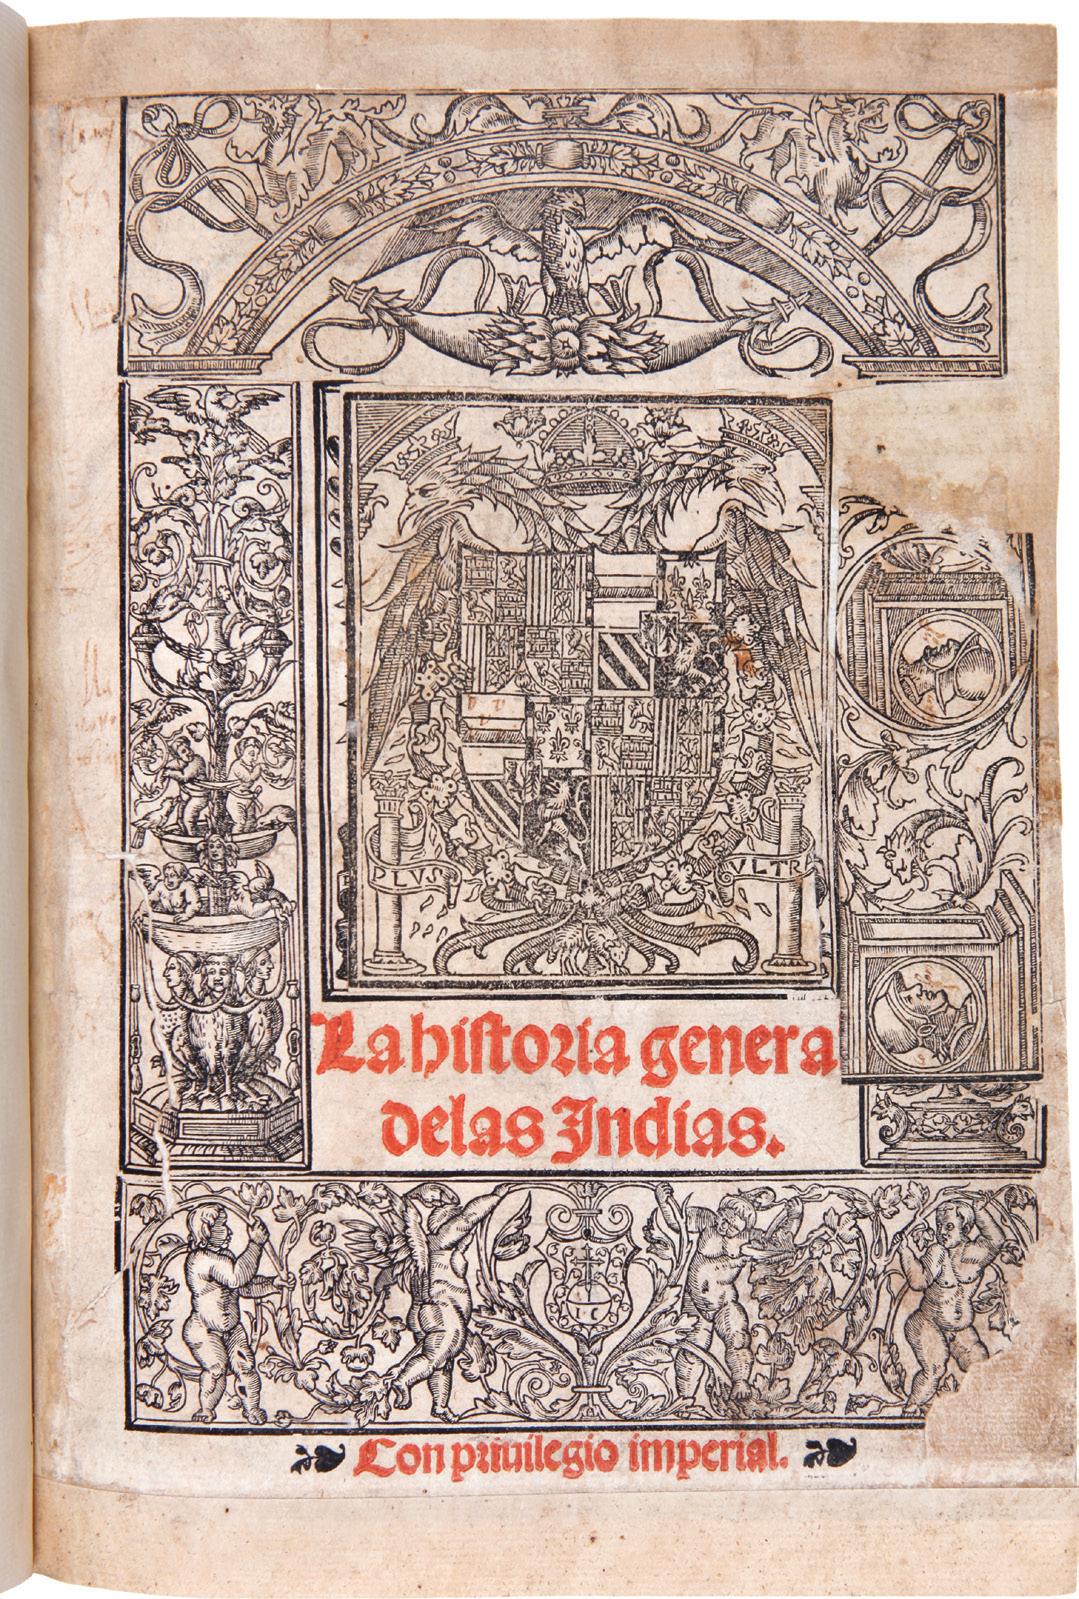 PLVS VLTR
La historia genera
delas Indias.
Con priuilegio imperial.